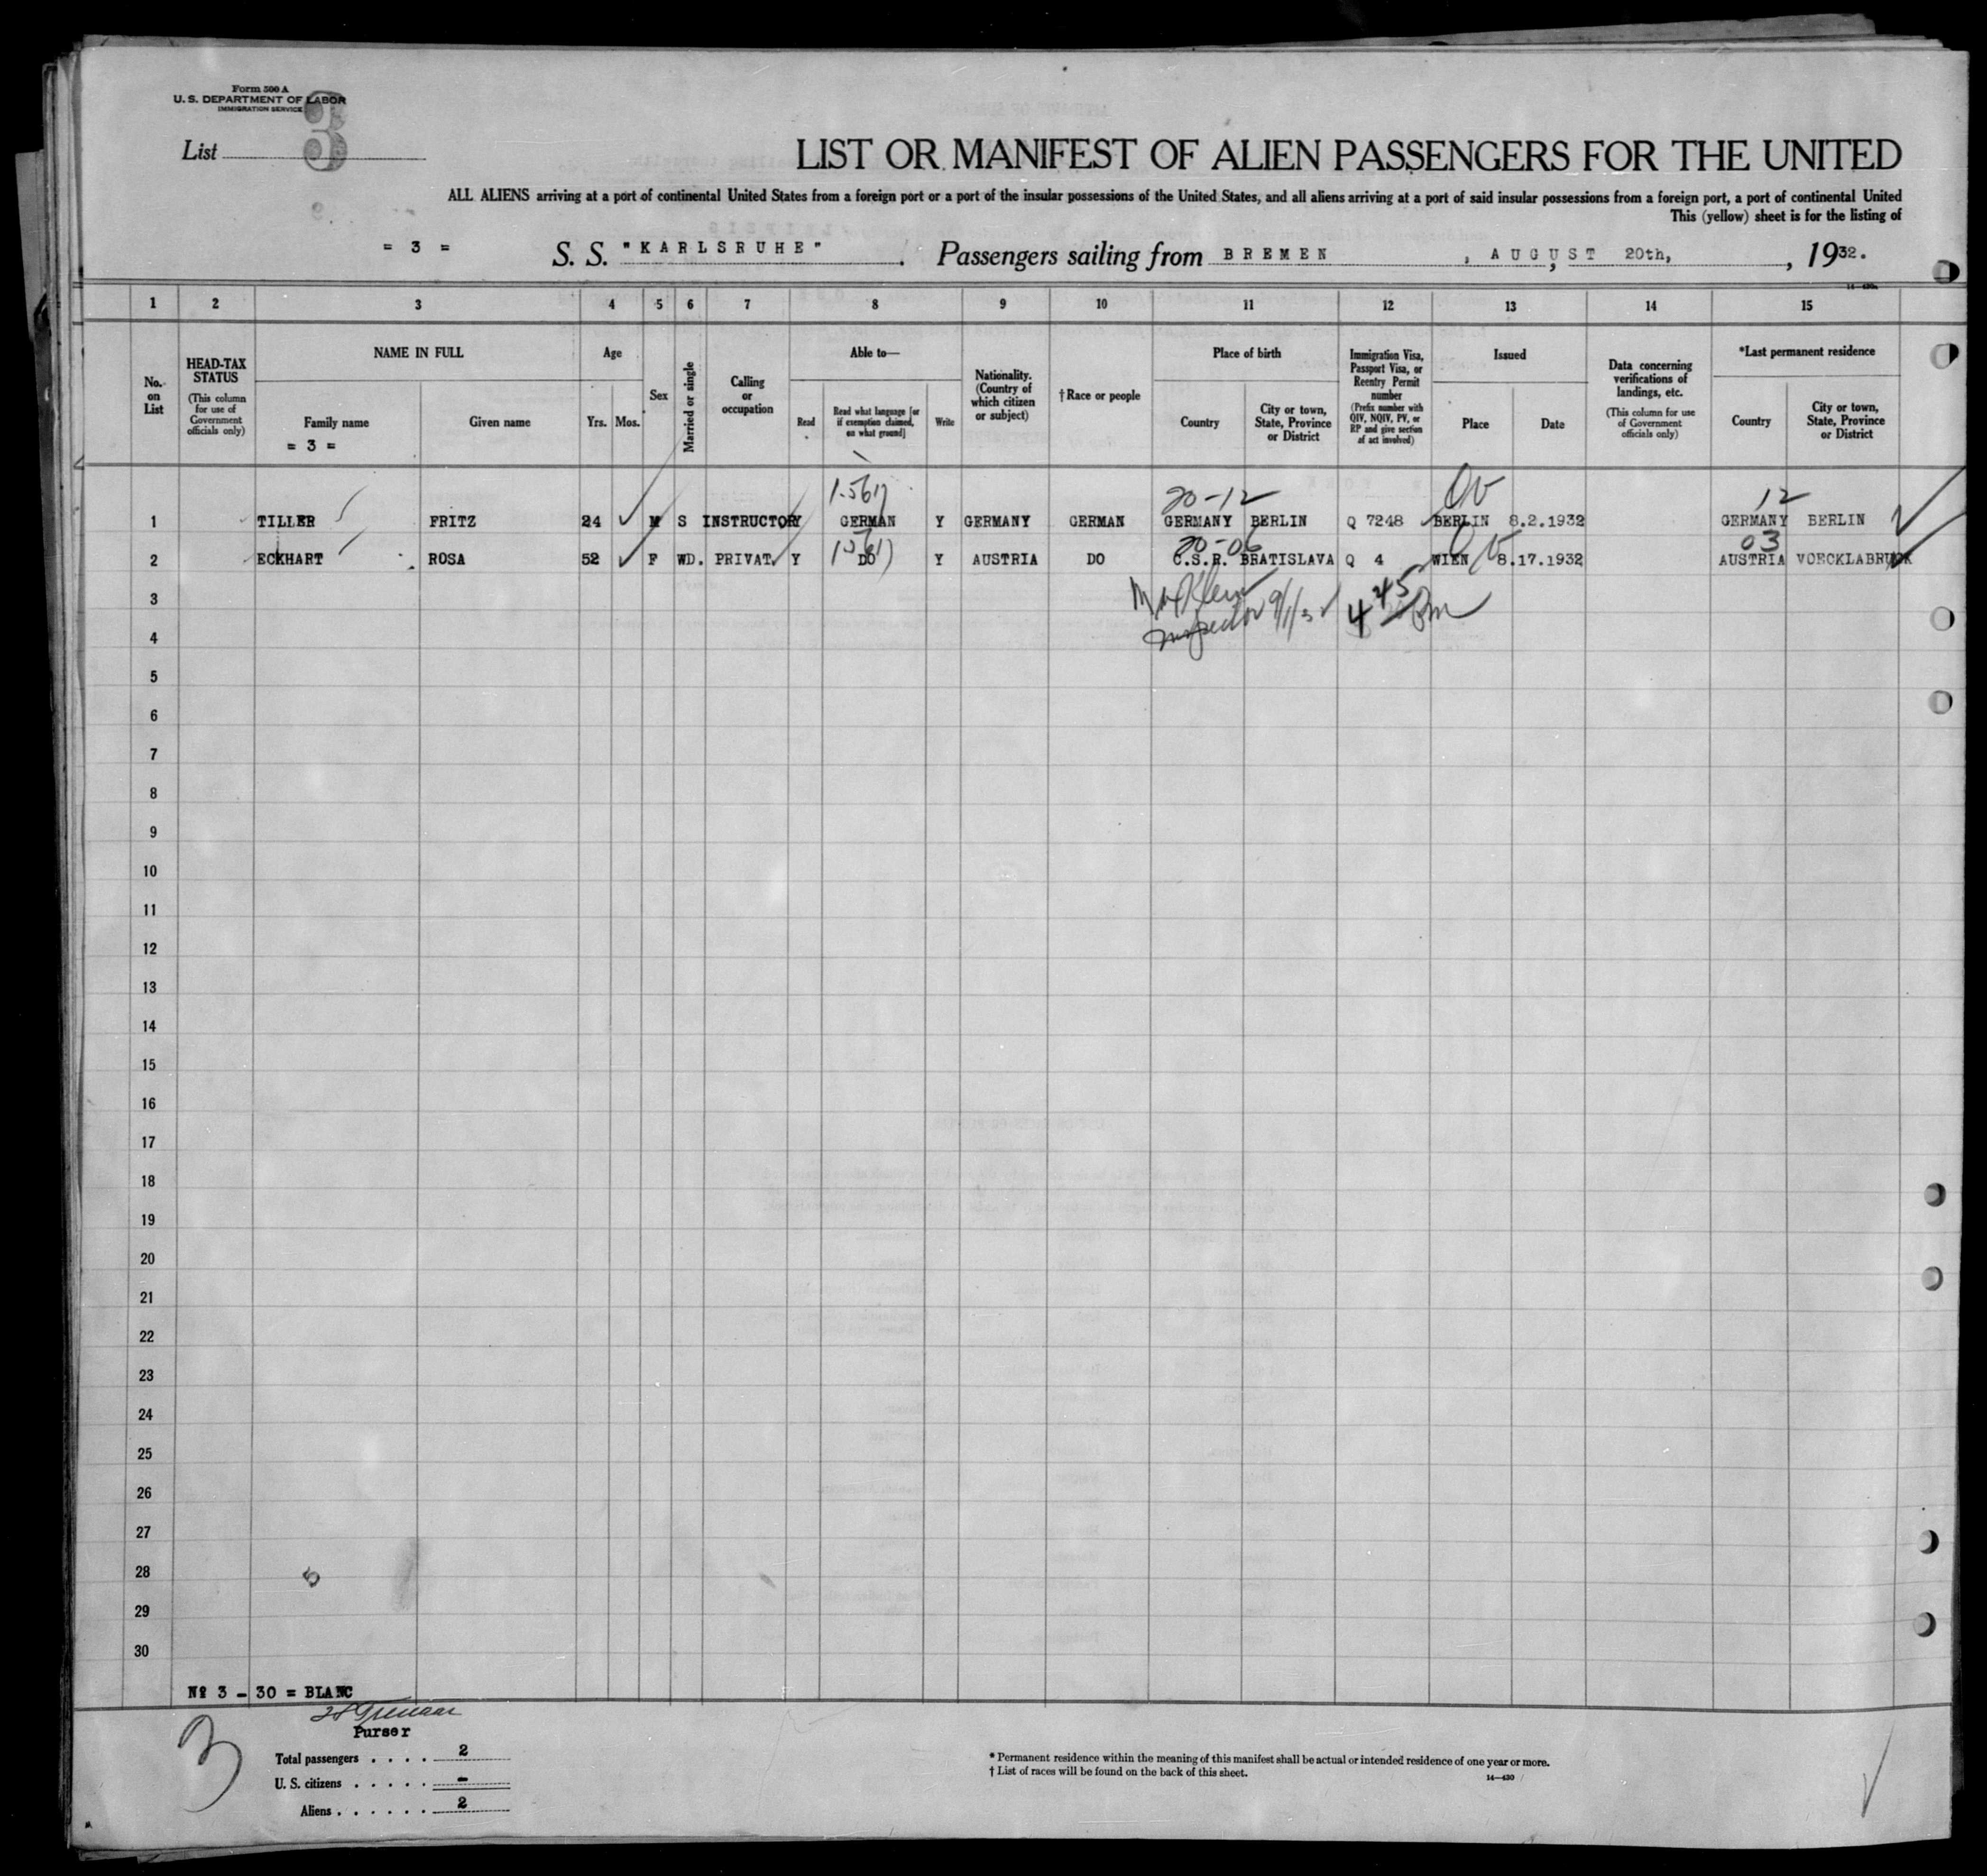 Form 500 A
U. S. DEPARTMENT OF LABOR
IMMIGRATION SERVICE
List 3
LIST OR MANIFEST OF ALIEN PASSENGERS FOR THE UNITED
ALL ALIENS arriving at a port of continental United States from a foreign port or a port of the insular possessions of the United States, and all aliens arriving at a port of said insular possessions from a foreign port, a port of continental United
This (yellow) sheet is for the listing of
= 3 = S. S. "KARLSRUHE". Passengers sailing from BREMEN, AUGUST 20th, , 1932.
1 2 3 4 5 6 7 8 9 10 11 12 13 14 15
No. on List
HEAD-TAX STATUS (This column for use of Government officials only)
NAME IN FULL
Family name
= 3 =
Given name
Age
Yrs. Mos.
Sex
Married or single
Calling or occupation
Able to—
Read
Read what language [or if exemption claimed, on what ground]
Write
Nationality. (Country of which citizen or subject)
†Race or people
Place of birth
Country
City or town, State, Province or District
Immigration Visa, Passport Visa, or Reentry Permit number (Prefix number with QIV, NQIV, PV, or RP and give section of act involved)
Issued
Place
Date
Data concerning verifications of landings, etc. (This column for use of Government officials only)
*Last permanent residence
Country
City or town, State, Province or District
20-12 12
1 TILLER FRITZ 24 M S INSTRUCTOR Y GERMAN Y GERMANY GERMAN GERMANY BERLIN Q 7248 BERLIN 8.2.1932 GERMANY BERLIN
20-06 03
2 ECKHART ROSA 52 F WD. PRIVAT. Y DO Y AUSTRIA DO C.S.R. BRATISLAVA Q 4 WIEN 8.17.1932 AUSTRIA VOECKLABRUCK
3
Inspector 9/1/32 4 45 Pm
4
5
6
7
8
9
10
11
12
13
14
15
16
17
18
19
20
21
22
23
24
25
26
27
28 5
29
30
№ 3 - 30 = BLANC
3
Purser
Total passengers . . . . 2
U. S. citizens . . . . . -
Aliens . . . . . . 2
* Permanent residence within the meaning of this manifest shall be actual or intended residence of one year or more.
† List of races will be found on the back of this sheet.
14—430